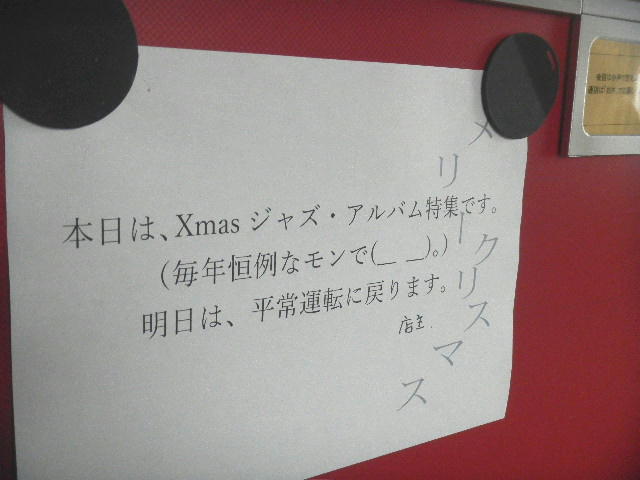 本日は、Xmas ジャズ・アルバム特集です。
(毎年恒例なモンで(_ _)。)
明日は、平常運転に戻ります。
店主.
メリークリスマス